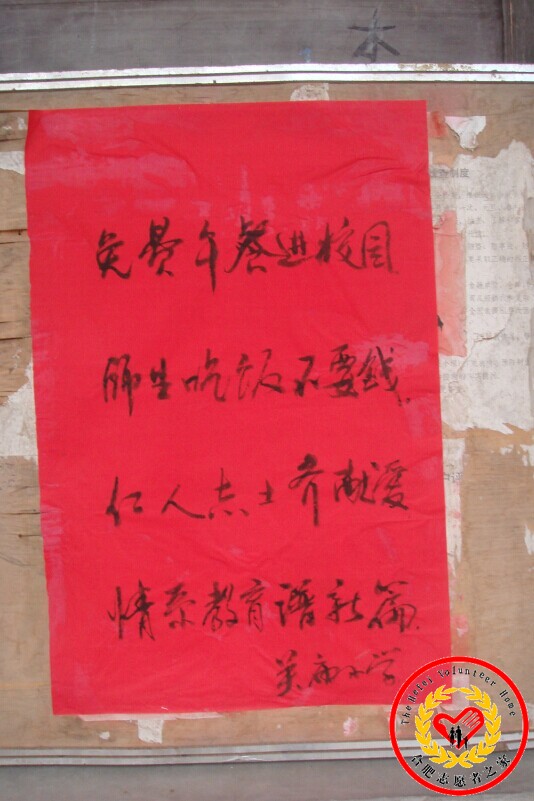 木
免费午餐进校园
师生吃饭不要钱。
仁人志士齐献爱
情系教育谱新篇
吴庙小学
The Hefei Volunteer Home
合肥志愿者之家